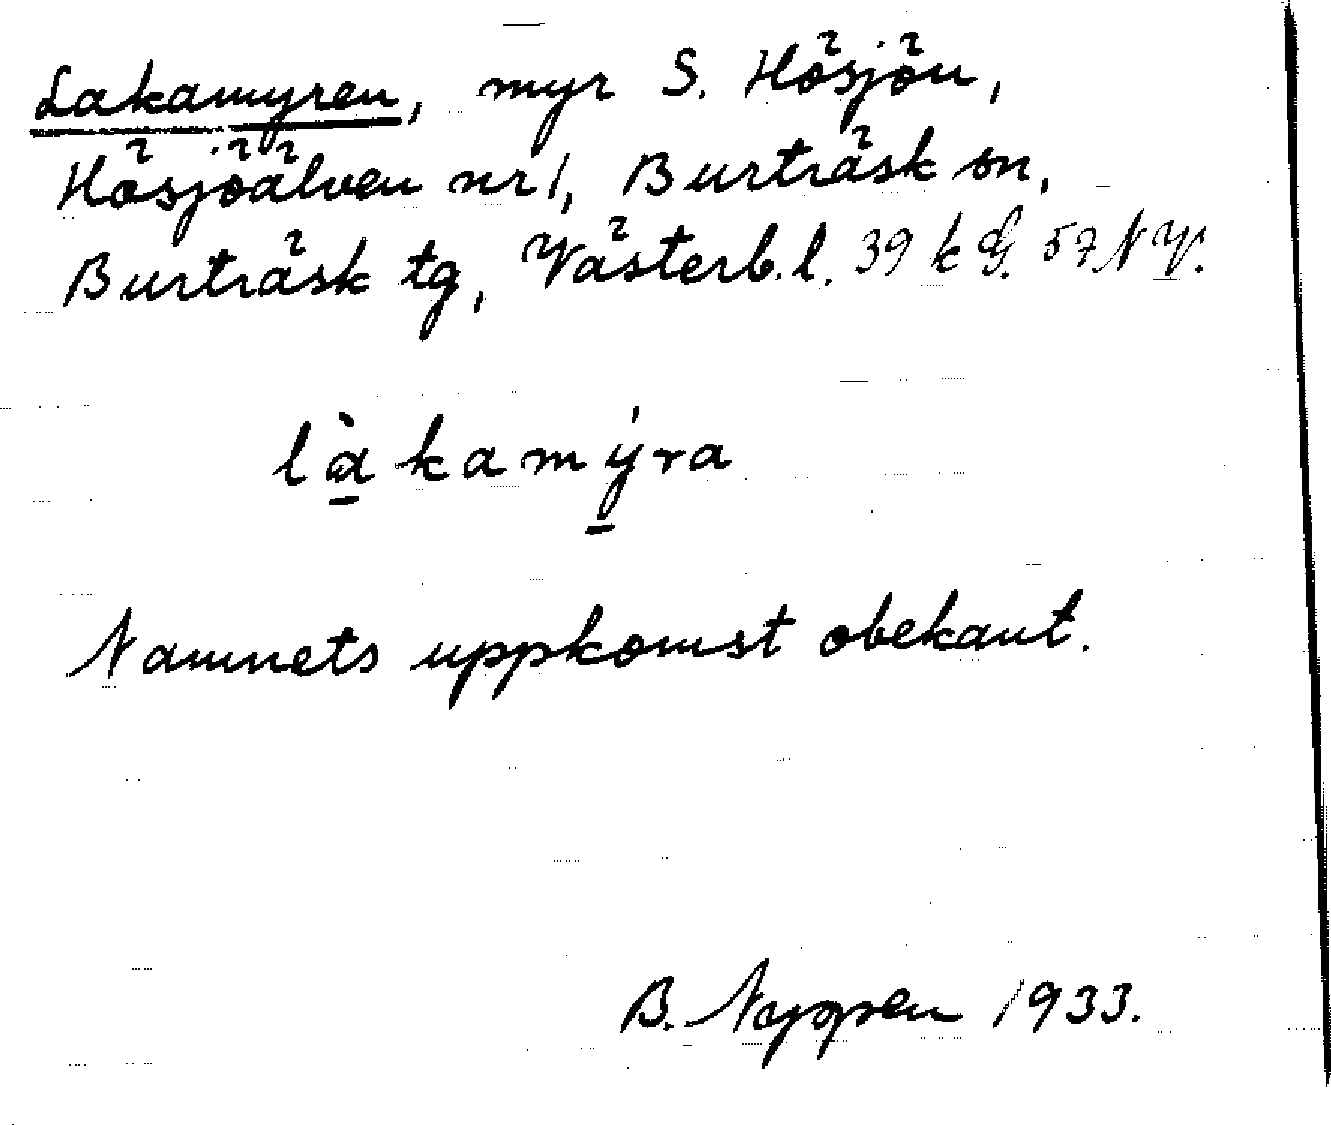 Lakamyren, myr S. Hösjön,
Hösjöälven nr 1, Burträsk sn,
Burträsk tg, Västerb. l. 39 k G. 57 N V.
làkamýra
Namnets uppkomst obekant.
B. 1933.